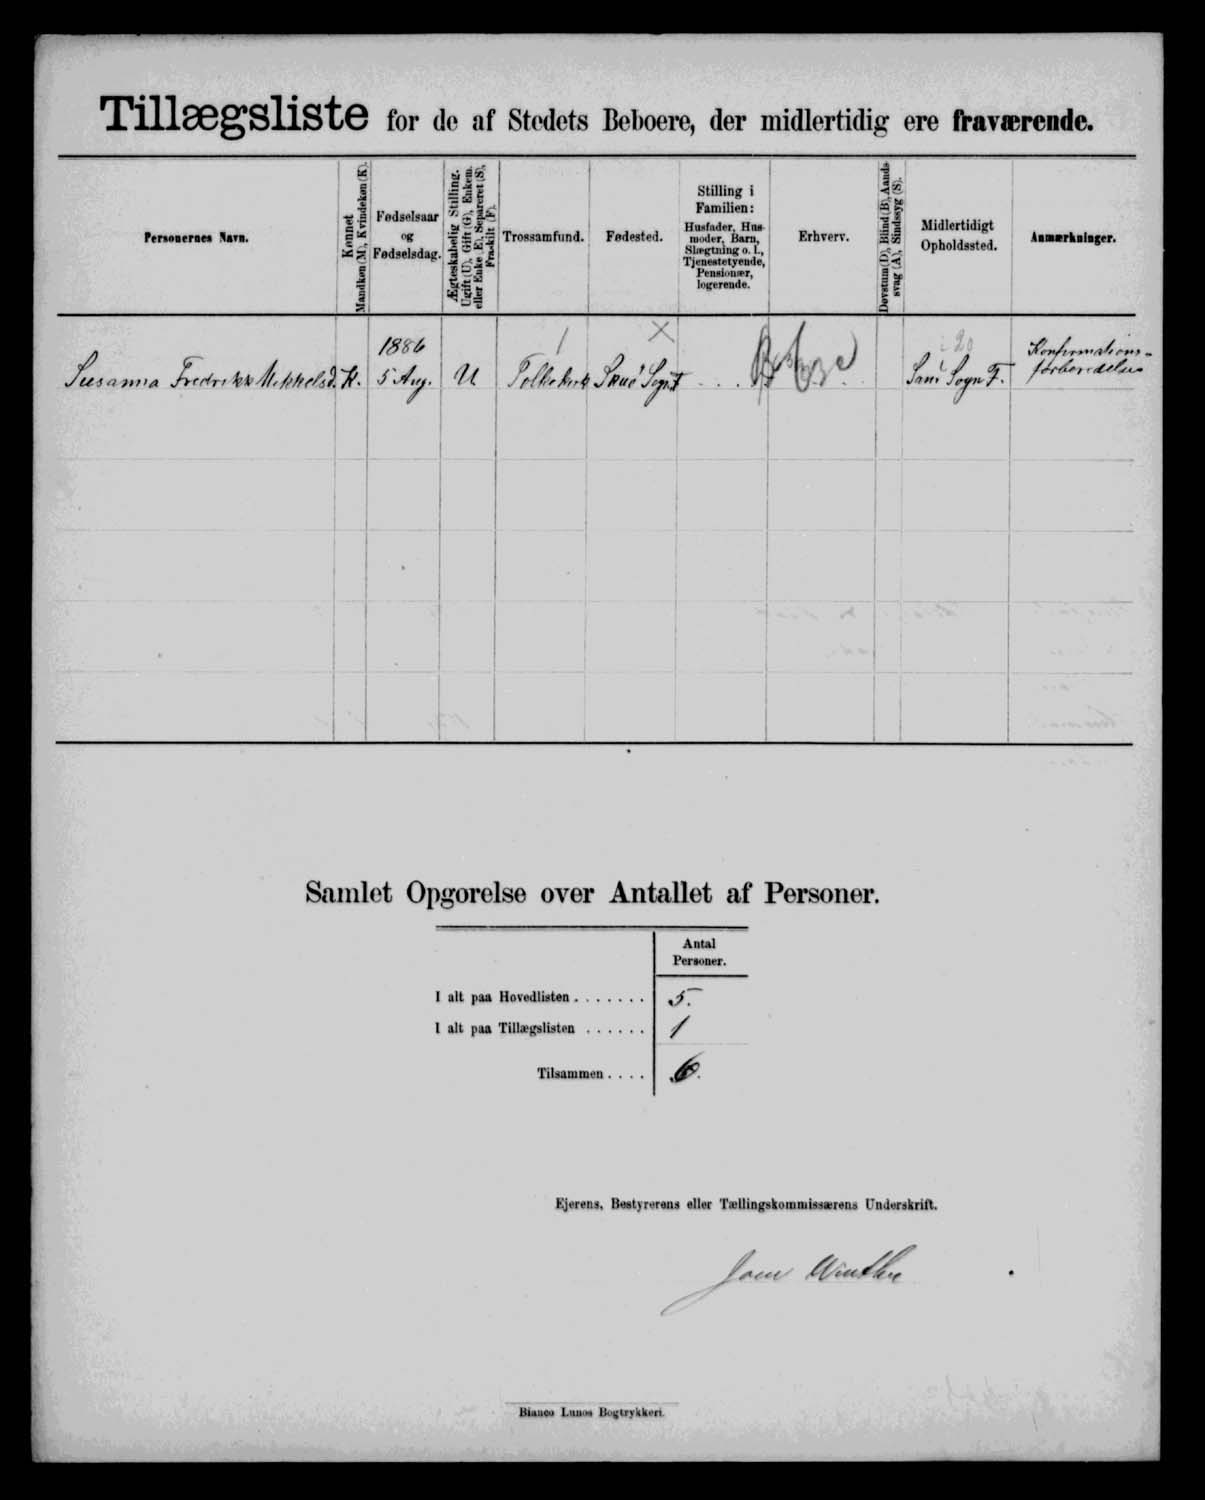 Tillægsliste for de af Stedets Beboere, der midlertidig ere fraværende.
Personernes Navn.
Kønnet Mandkøn (M), Kvindekøn (K).
Fødselsaar og Fødselsdag.
Ægteskabelig Stilling. Ugift (U), Gift (G), Enkem. eller Enke (E), Separeret (S), Fraskilt (F).
Trossamfund.
Fødested.
Stilling i Familien: Husfader, Husmoder, Barn, Slægtning o. l., Tjenestetyende, Pensionær, logerende.
Erhverv.
Døvstum (D), Blind (B), Aandssvag (A), Sindssyg (S).
Midlertidigt Opholdssted.
Anmærkninger.
1886
Susanna Fredrikke Mikkelsd. K. 5 Aug. U Folkekirk Skuø Sogn F Sand Sogn F. Konfirmations-
forberedelse
Samlet Opgørelse over Antallet af Personer.
Antal
Personer.
I alt paa Hovedlisten . . . . . . . 5.
I alt paa Tillægslisten . . . . . . 1
Tilsammen . . . . 6.
Ejerens, Bestyrerens eller Tællingskommissærens Underskrift.
Joen Winther
Bianco Lunos Bogtrykkeri.